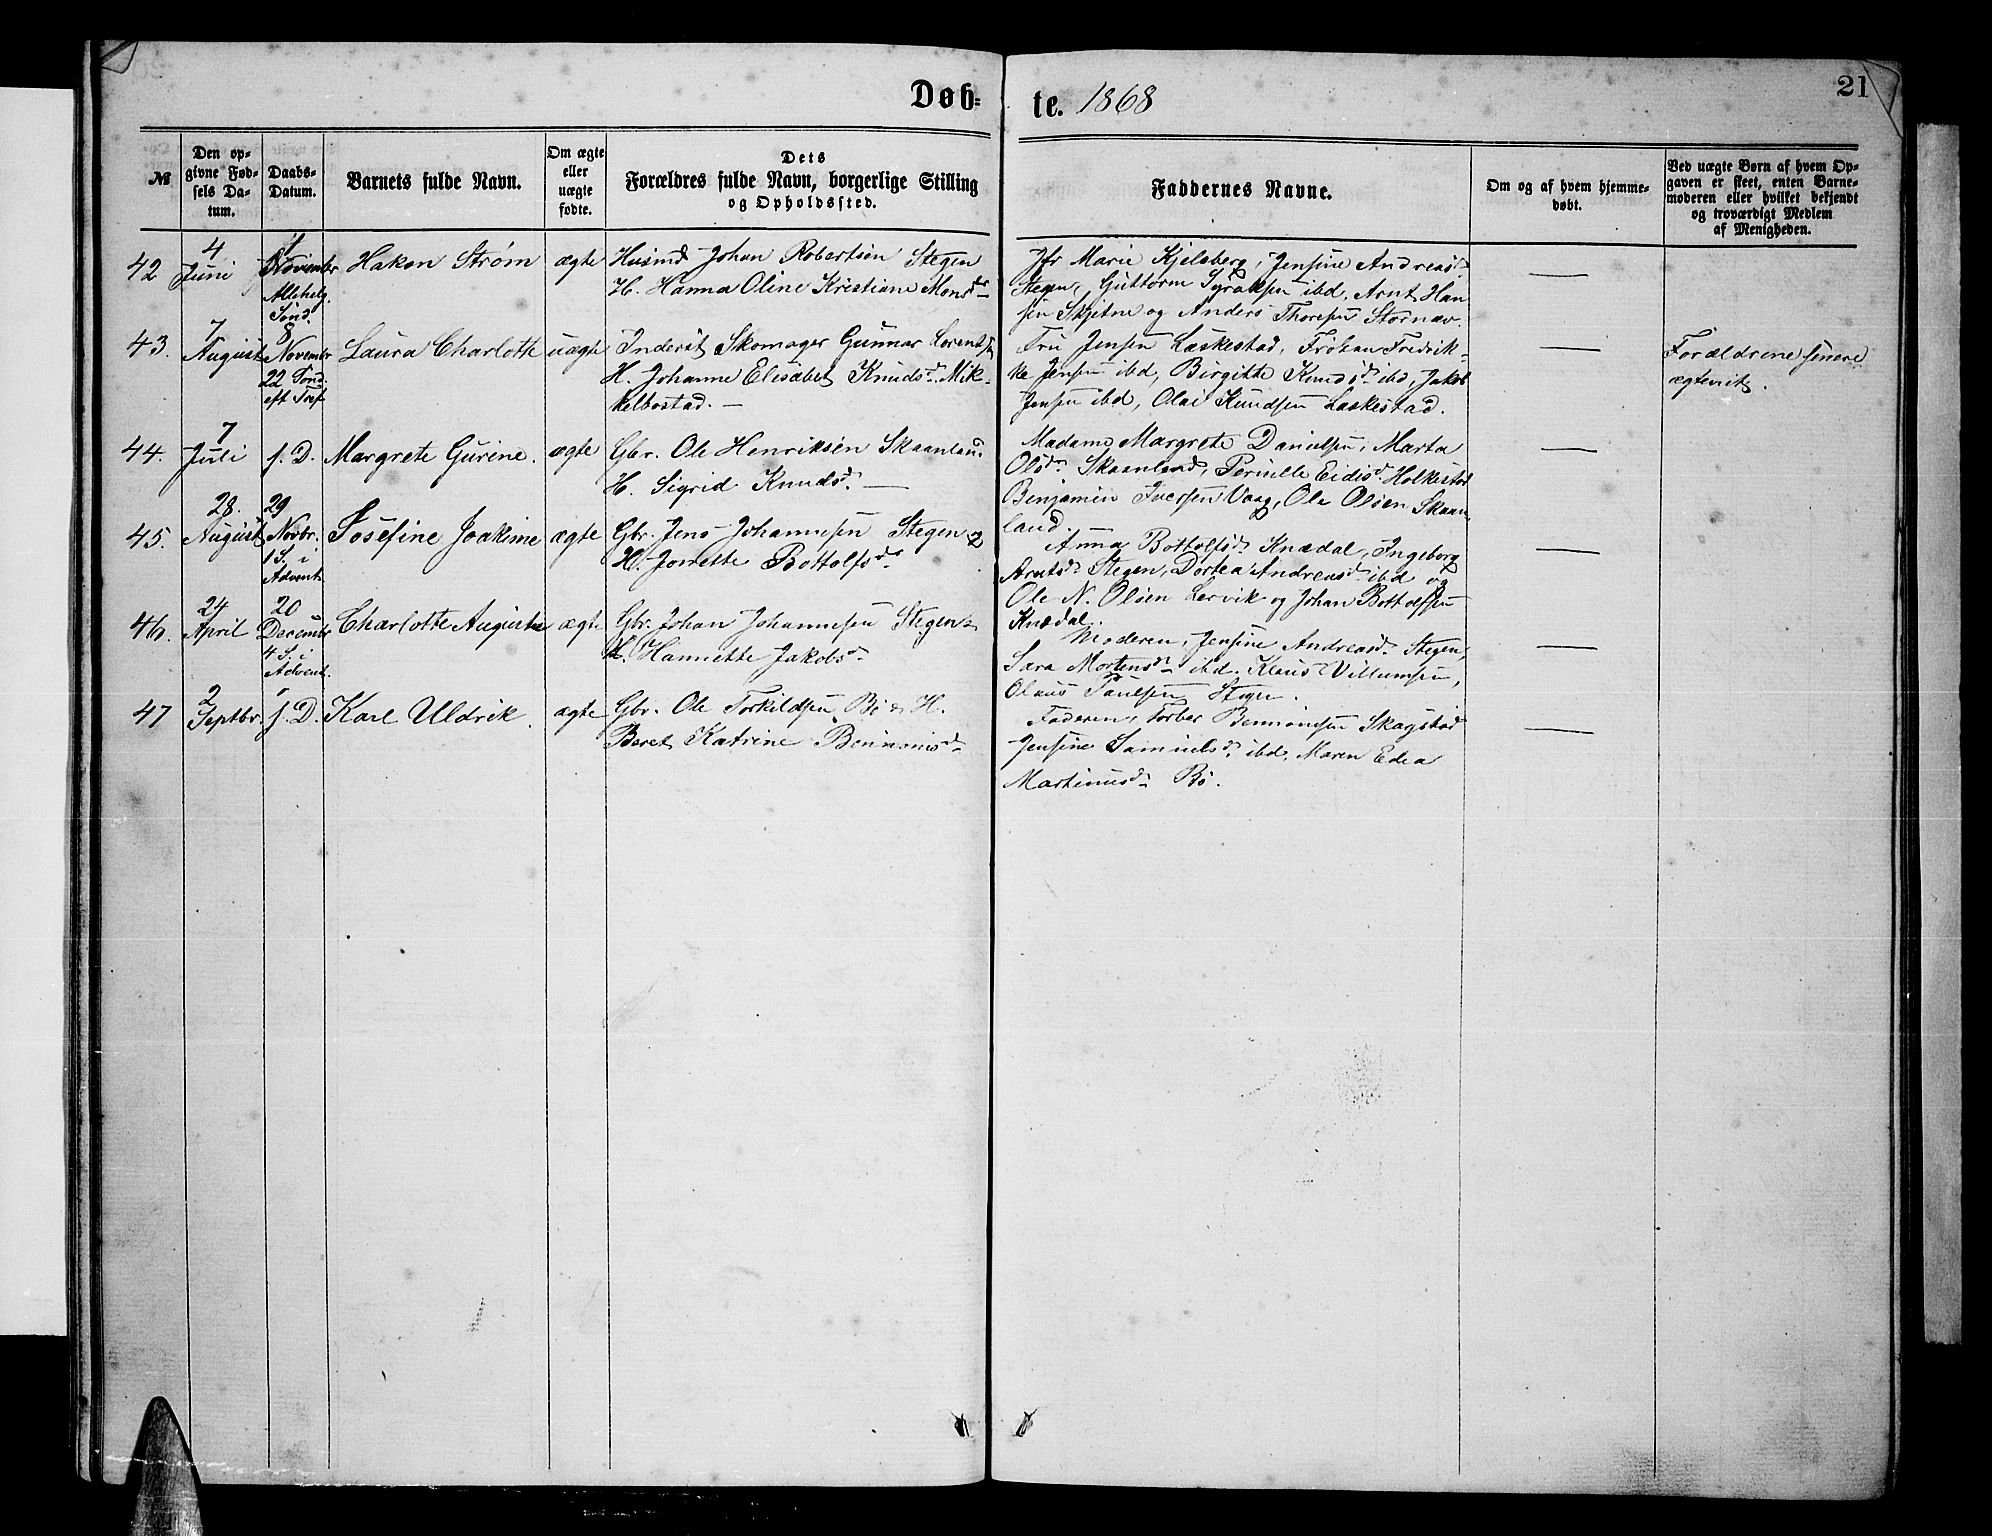 Døb-
te. 1868
21
№
Den op-
givne Fød-
sels Da-
tum.
Daabs-
Datum.
Barnets fulde Navn.
Om ægte
eller
uægte
fødte.
Dets
Forældres fulde Navn, borgerlige Stilling
og Opholdssted.
Faddernes Navne.
Om og af hvem hjemme-
døbt.
Ved uægte Børn af hvem Op-
gaven er skeet, enten Barne-
moderen eller hvilket bekjendt
og troværdigt Medlem
af Menigheden.
42
4
Juni
1
November
Allehelg.
Sønd.
Hakon Strøm
ægte
Husmd Johan Robertsen Stegen
H. Hanna Oline Kristiane Monsdr
Jfr Marie Kjelsberg, Jensine Andreasd.
Stegen, Guttorm ibd, Arnt Han
sen Skjetne og Anders Thoresen Stornæv.
43.
7
August
8
November
22 Sønd.
eft Tref
Laura Charlotte
uægte
Inderst Skomager Gunnar Lorentsen
H. Johanne Elisabet Knudsd. Mik-
kelbostad. —
Fru Jensen Laskestad, Frøken Fredrik-
ke Jensen ibd, Birgitte Knudsd. ibd, Jakob
Jensen ibd, Olai Knudsen Laskestad.
Forældrene senere
ægteviet.
44.
7
Juli
s. D.
Margrete Gurine.
ægte
Gbr. Ole Henriksen Skaanland
H. Sigrid Knudsd. —
Madame Margrete Danielsen, Marta
Olsd. Skaanland, Pernille Eidisd. Holkestad
Benjamin Iversen Vaag, Ole Olsen Skaan-
land.
45.
28.
August
29
Novbr.
1 S. i
Advent
Josefine Joakime
ægte
Gbr. Jens Johannesen Stegen
H. Jonette Bottolfsdr
Anna Bottolfsd. Knædal, Ingeborg
Arntsd. Stegen, Dortea Andreasd. ibd og
Ole N. Olsen Lervik og Johan Bottolfsen
Knædal.
46.
24
April
20
December
4 S. i
Advent.
Charlotte Auguste
ægte
Gbr. Johan Johannesen Stegen
H. Hannette Jakobsd.
Moderen, Jensine Andreasd. Stegen,
Sara Mortensd. ibd, Klaus Villumsen,
Olaus Paulsen Stegen.
47
2
Septbr.
s. D.
Karl Uldrik.
ægte
Gbr. Ole Torkildsen Bø & H.
Beret Katrine Benmonisd.
Faderen, Torber Benmonisen Skagstad
Jensine Samuelsd. ibd, Maren Edea
Martinusd. Bø.